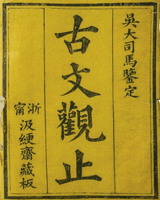 吳大司馬鑒定
古文觀止
浙甯汲綆齋藏板